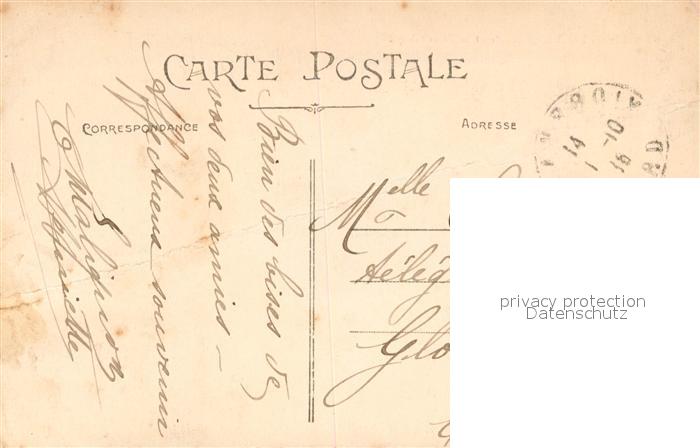 CARTE POSTALE
CORRESPONDANCE
ADRESSE
Bien des bises de
vos deux amies –
Affectueux souvenir
Melle
télég
Glo
14
-10
privacy protection
Datenschutz